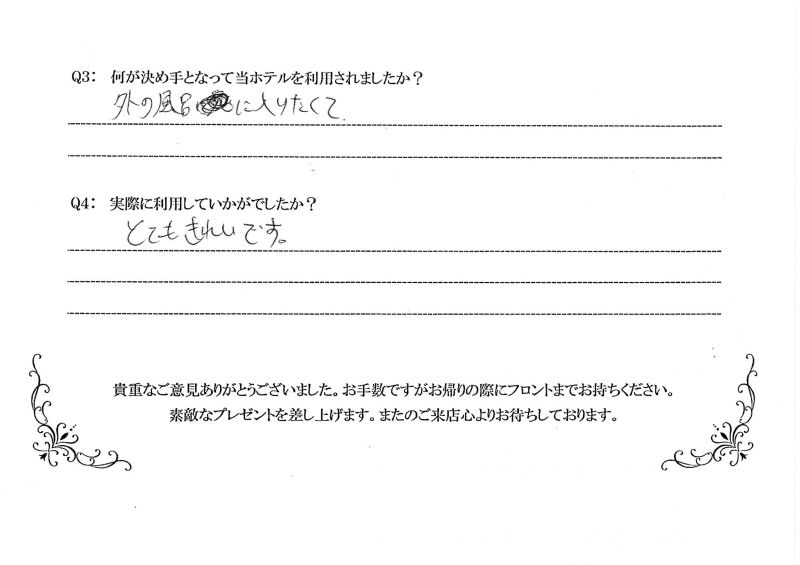 Q3： 何が決め手となって当ホテルを利用されましたか？
外の風呂に入りたくて
Q4： 実際に利用していかがでしたか？
とてもきれいです。
貴重なご意見ありがとうございました。お手数ですがお帰りの際にフロントまでお持ちください。
素敵なプレゼントを差し上げます。またのご来店心よりお待ちしております。